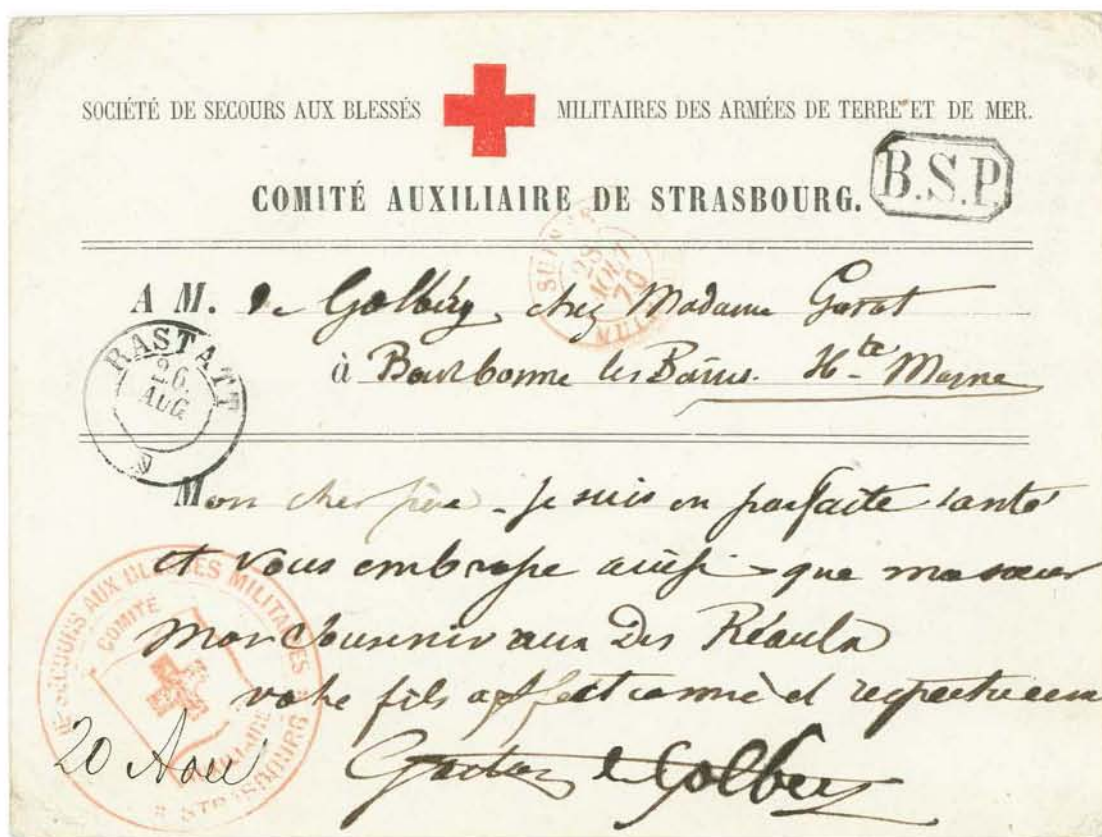 SOCIÉTÉ DE SECOURS AUX BLESSÉS MILITAIRES DES ARMÉES DE TERRE ET DE MER.
B.S.P.
COMITÉ AUXILIAIRE DE STRASBOURG.
SUISSE 28 AOUT 70
A M. de Golbéry, chez Madame Garat
à Bourbonne les Bains. Hte Marne
RASTATT 26. AUG
Mon cher père - je suis en parfaite santé
et vous embrasse ainsi que ma sœur
Mon souvenir aux Des Réaulx
votre fils affectionné et respectueux
Gaston de Golbéry
20 Aou
SECOURS AUX BLESSÉS MILITAIRES
COMITÉ AUXILIAIRE
STRASBOURG